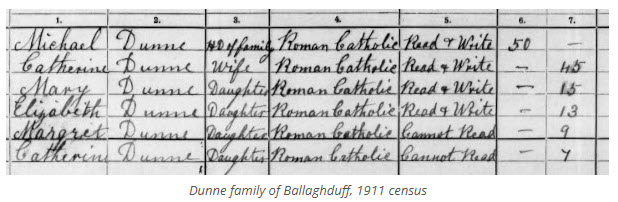 1. 2. 3. 4. 5. 6. 7.
Michael Dunne Hd of family Roman Catholic Read & Write 50 —
Catherine Dunne Wife Roman Catholic Read & Write — 45
Mary Dunne Daughter Roman Catholic Read & Write — 15
Elizabeth Dunne Daughter Roman Catholic Read & Write — 13
Margret Dunne Daughter Roman Catholic Cannot Read — 9
Catherine Dunne Daughter Roman Catholic Cannot Read — 7
Dunne family of Ballaghduff, 1911 census